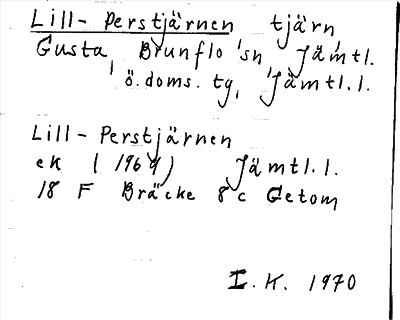 Lill-Perstjärnen tjärn,
Gusta, Brunflo sn, Jämtl.
ö. doms. tg, Jämtl. l.
Lill-Perstjärnen
ek (1969) Jämtl. l.
18 F Bräcke 8c Getom
I. K. 1970